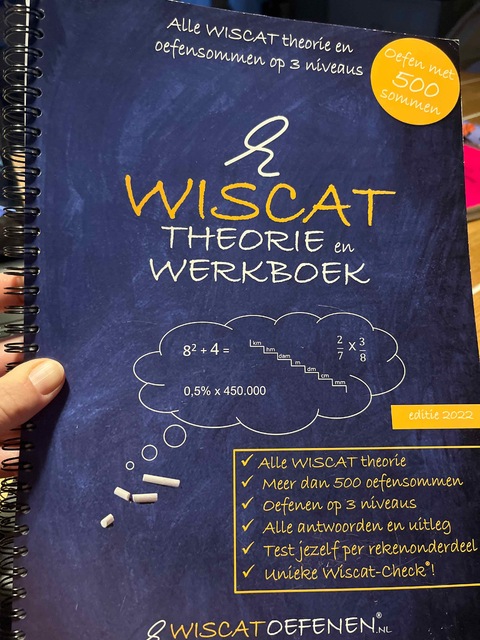 Alle WISCAT theorie en
oefensommen op 3 niveaus
Oefen met
500
sommen
WISCAT
THEORIE en
WERKBOEK
8² + 4 =
km
hm
dam
m
dm
cm
mm
2/7 x 3/8
0,5% x 450.000
editie 2022
✓ Alle WISCAT theorie
✓ Meer dan 500 oefensommen
✓ Oefenen op 3 niveaus
✓ Alle antwoorden en uitleg
✓ Test jezelf per rekenonderdeel
✓ Unieke Wiscat-Check®!
WISCATOEFENEN®.NL